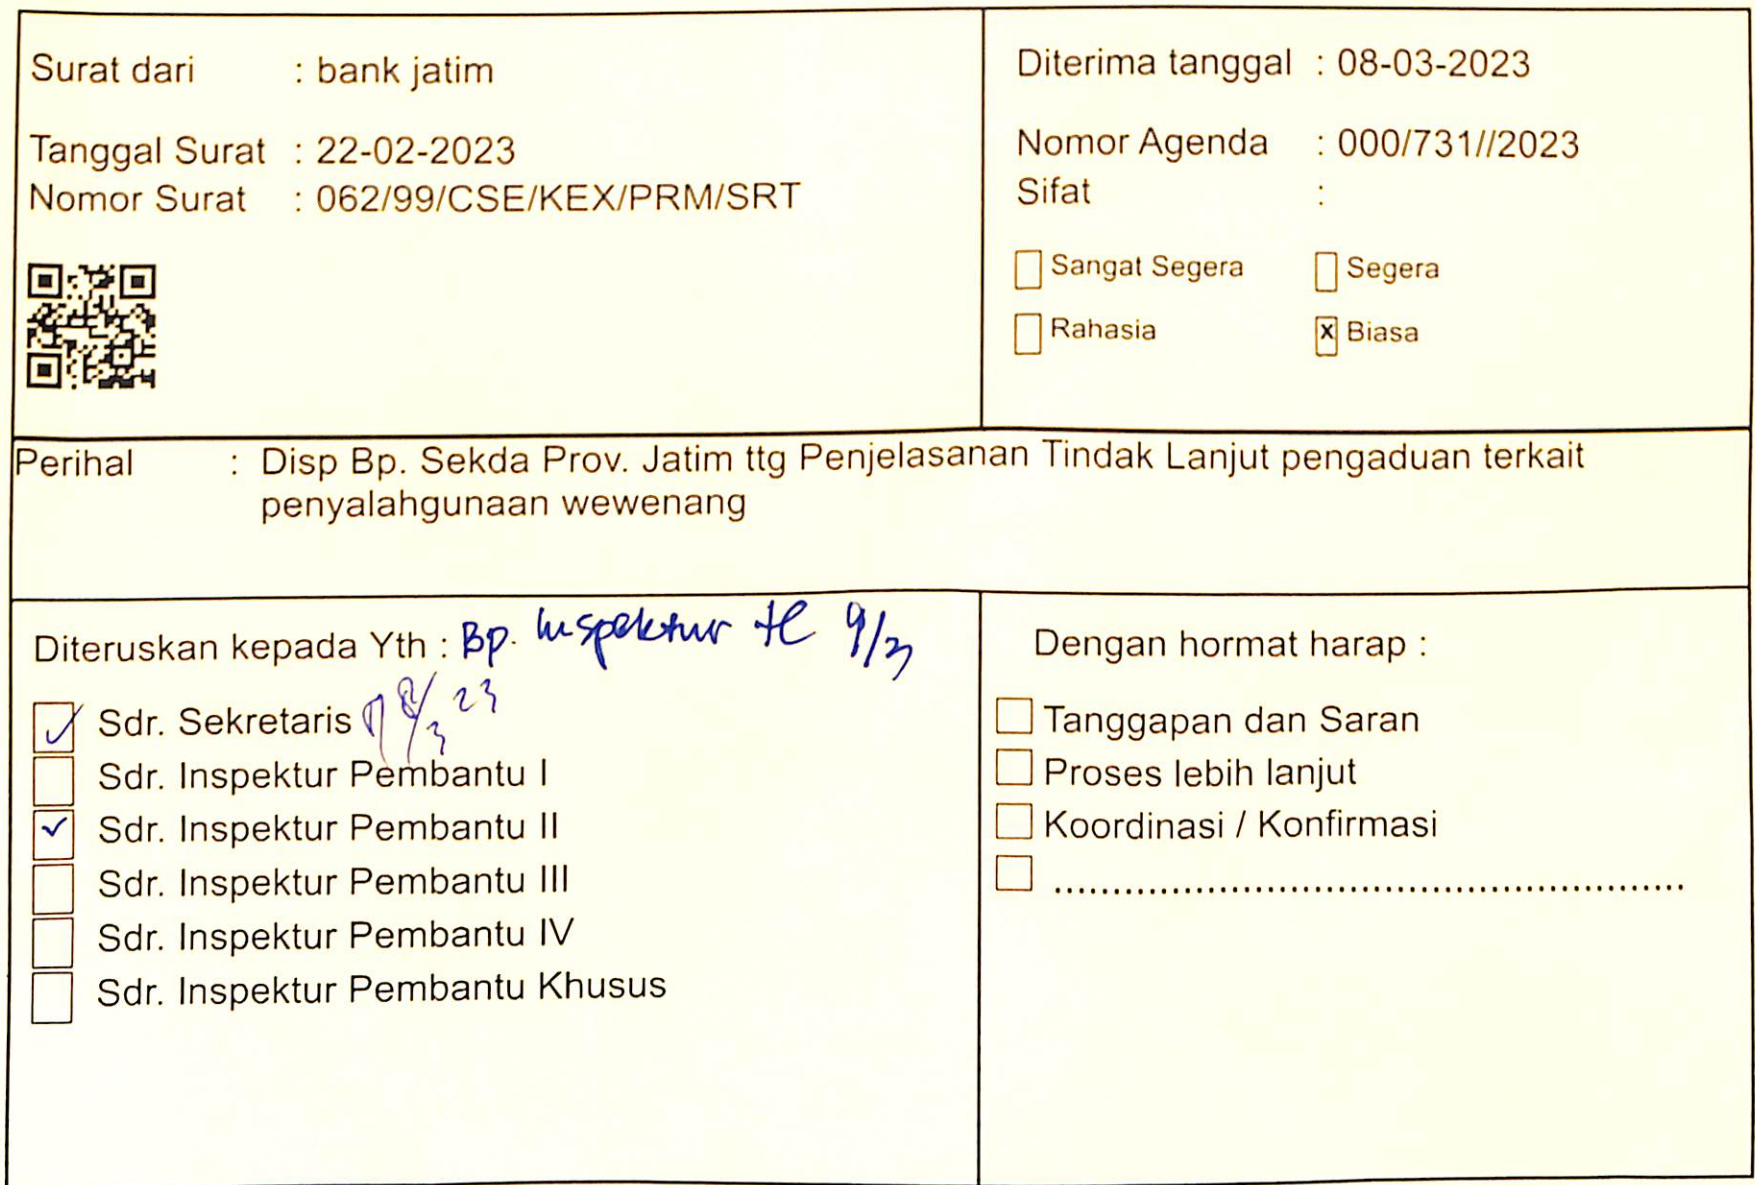 Surat dari : bank jatim
Tanggal Surat : 22-02-2023
Nomor Surat : 062/99/CSE/KEX/PRM/SRT
Diterima tanggal : 08-03-2023
Nomor Agenda : 000/731//2023
Sifat :
Sangat Segera Segera
Rahasia x Biasa
Perihal : Disp Bp. Sekda Prov. Jatim ttg Penjelasanan Tindak Lanjut pengaduan terkait
penyalahgunaan wewenang
Diteruskan kepada Yth : Bp. Inspektur 9/3
Sdr. Sekretaris 8/3 23
Sdr. Inspektur Pembantu I
Sdr. Inspektur Pembantu II
Sdr. Inspektur Pembantu III
Sdr. Inspektur Pembantu IV
Sdr. Inspektur Pembantu Khusus
Dengan hormat harap :
Tanggapan dan Saran
Proses lebih lanjut
Koordinasi / Konfirmasi
......................................................